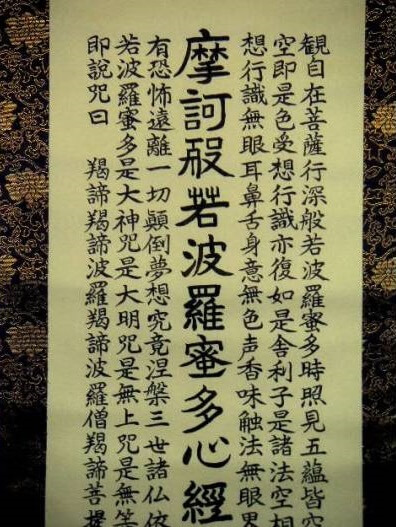 観自在菩薩行深般若波羅蜜多時照見五蘊皆空
空即是色受想行識亦復如是舎利子是諸法空相
想行識無眼耳鼻舌身意無色声香味触法無眼界
摩訶般若波羅蜜多心經
有恐怖遠離一切顛倒夢想究竟涅槃三世諸仏依
若波羅蜜多是大神咒是大明咒是無上咒是無等
即説咒曰　羯諦羯諦波羅羯諦波羅僧羯諦菩提